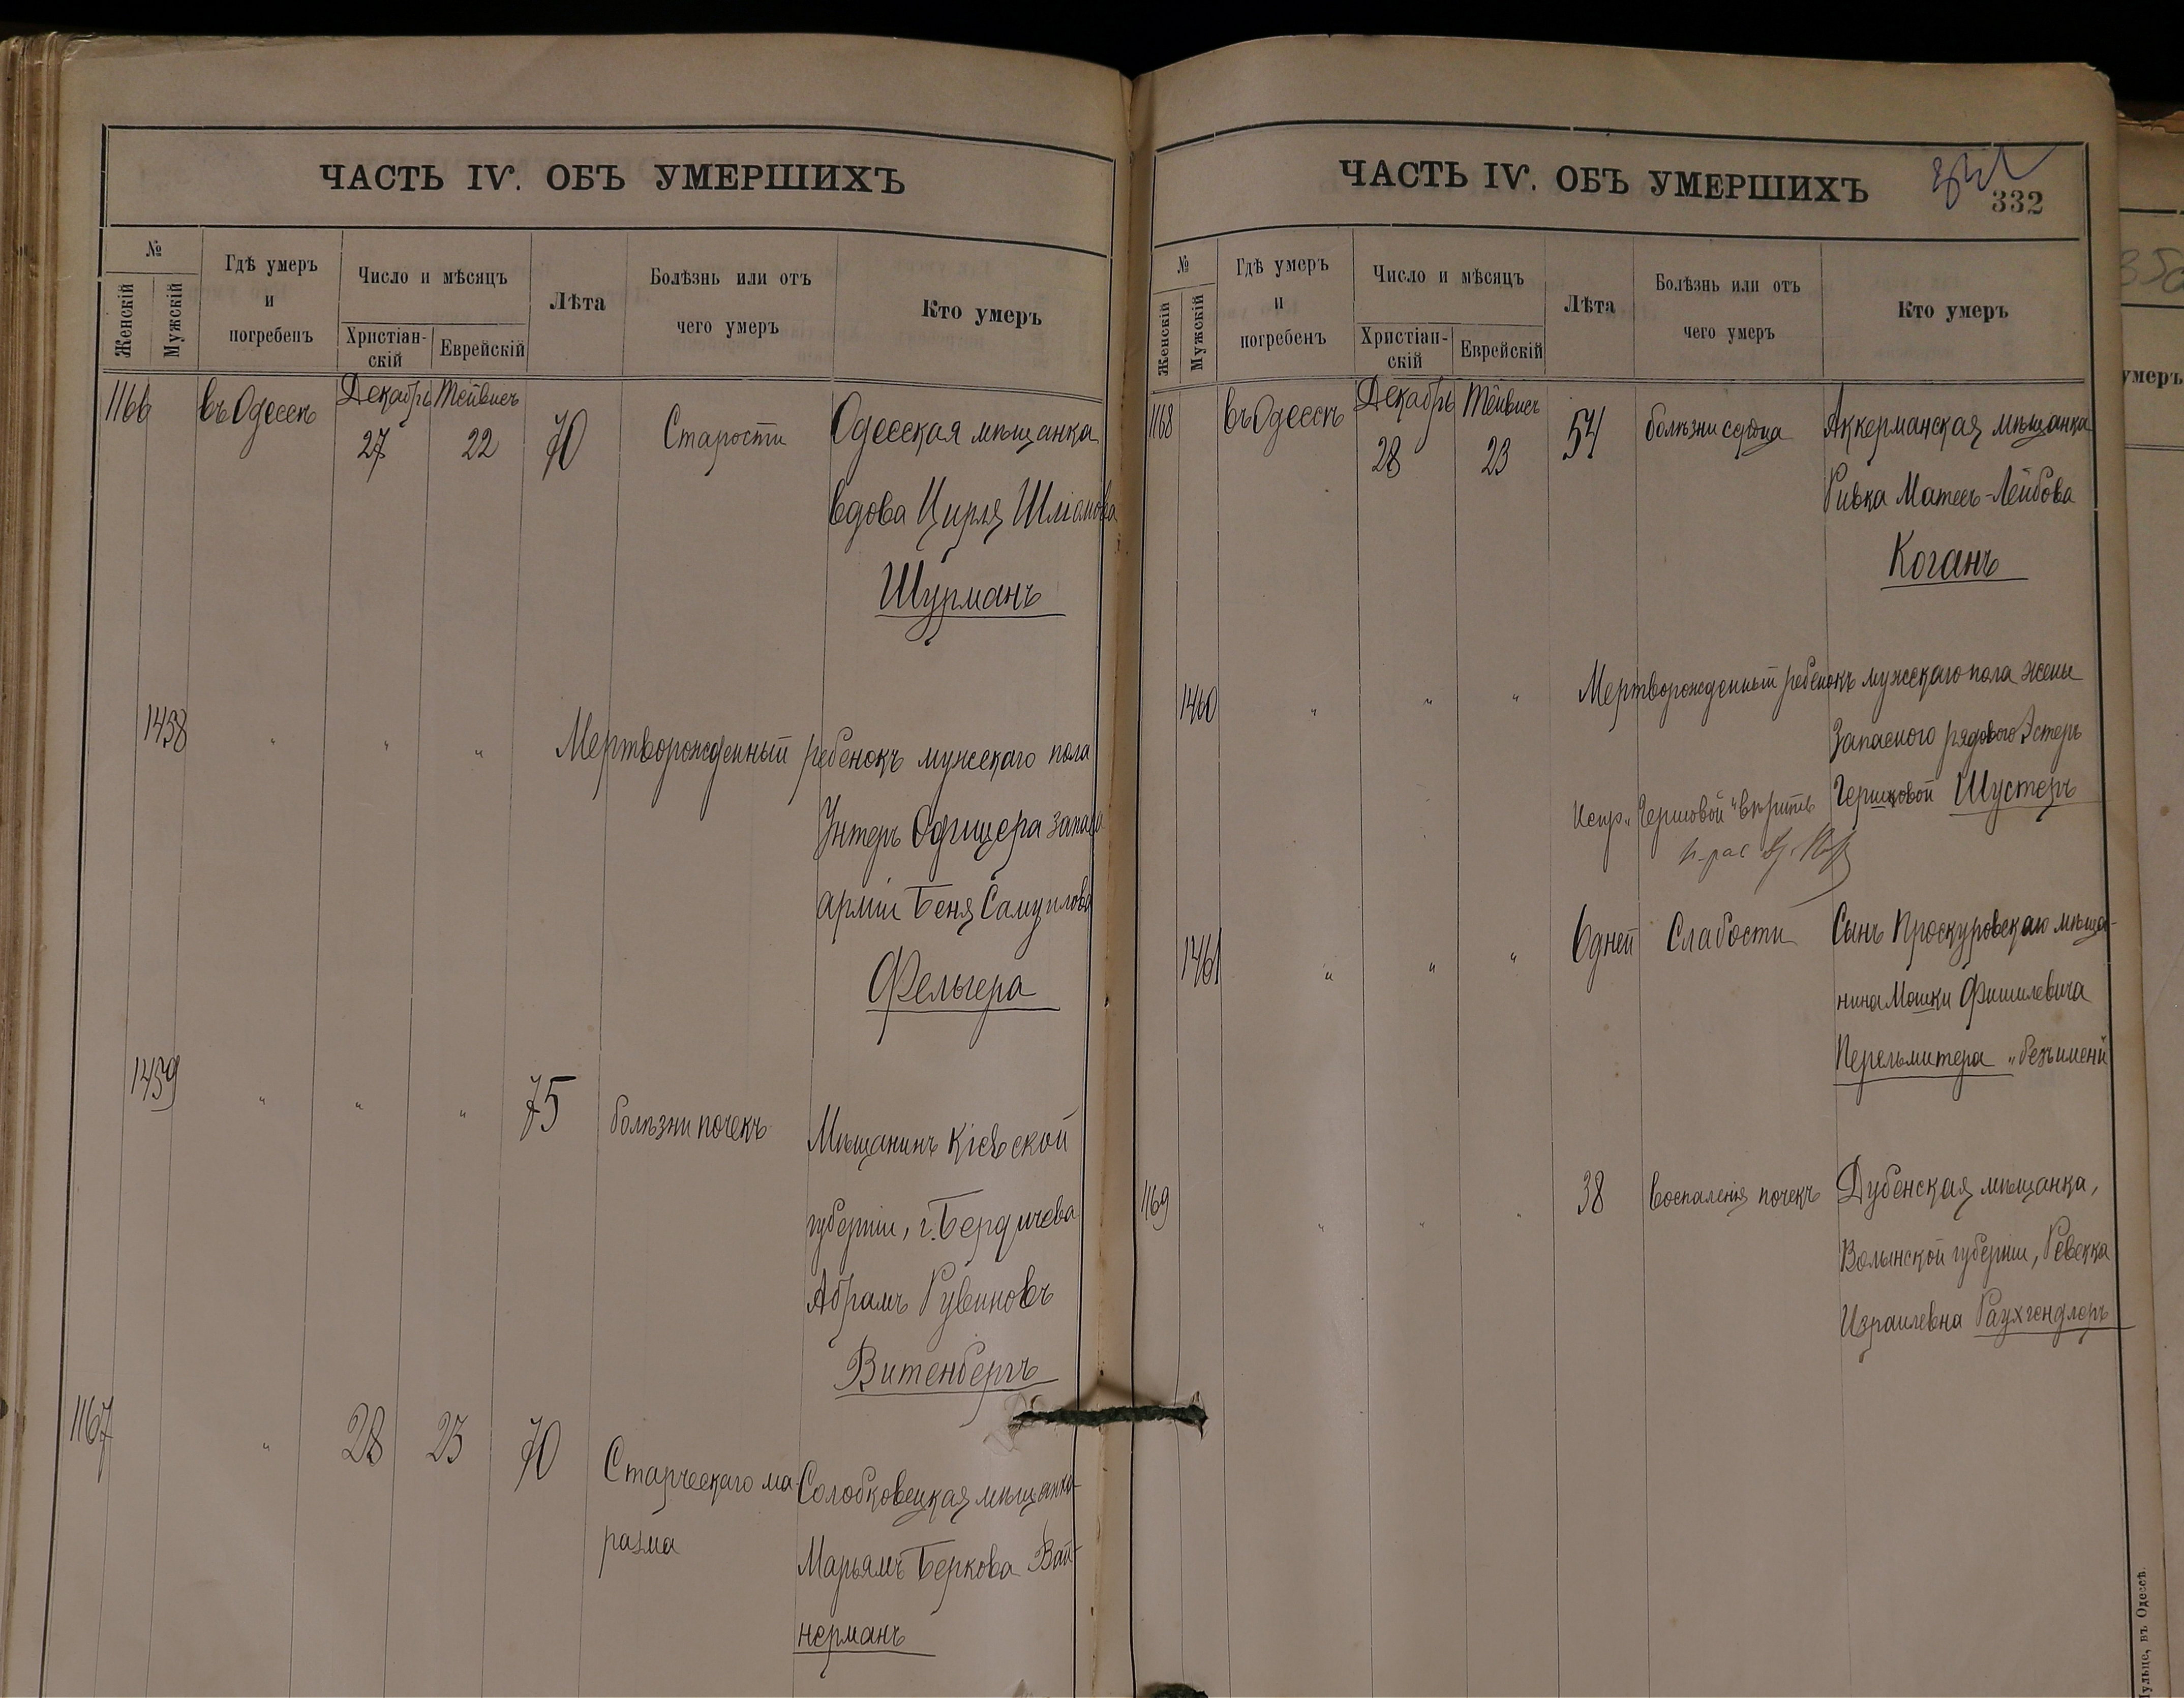 ЧАСТЬ IV. ОБЪ УМЕРШИХЪ
№
Женскій
Мужскій
Гдѣ умеръ
и
погребенъ
Число и мѣсяцъ
Христіан-
скій
Еврейскій
Лѣта
Болѣзнь или отъ
чего умеръ
Кто умеръ
1166 въ Одессѣ Декабрь Тейвисъ
27 22 70 Старости Одесская мѣщанка
вдова Цирля Шліомова
Шурманъ
1458 " " " Мертворожденный ребенокъ мужскаго пола
Унтеръ Офицера запаса
арміи Беня Самуилова
Фельгера
1459 " " " 75 болѣзни почекъ Мѣщанинъ Кіевской
губерніи, г. Бердичева
Абрамъ Рувиновъ
Витенбергъ
1167 " 28 23 70 Старческаго ма- Солобковецкая мѣщанка
разма Марьямъ Беркова Вай-
нерманъ
ЧАСТЬ IV. ОБЪ УМЕРШИХЪ
332
№
Женскій
Мужскій
Гдѣ умеръ
и
погребенъ
Число и мѣсяцъ
Христіан-
скій
Еврейскій
Лѣта
Болѣзнь или отъ
чего умеръ
Кто умеръ
1168 въ Одессѣ Декабрь Тейвисъ
28 23 54 болѣзни сердца Аккерманская мѣщанка
Ривка Матесъ-Лейбова
Коганъ
1460 " " " Мертворожденный ребенокъ мужскаго пола жены
Запасного рядового Эстеръ
Гершковой Шустеръ
Испр. "Гершовой" вѣрить
1461 " " " 6 дней Слабости Сынъ Проскуровскаго мѣща-
нина Мошки Фишилевича
Перельмитера "безъ имени
1169 " " " 38 воспаленія почекъ Дубенская мѣщанка,
Волынской губерніи, Ревекка
Израилевна Раухгендлеръ
умеръ
въ Одессѣ.